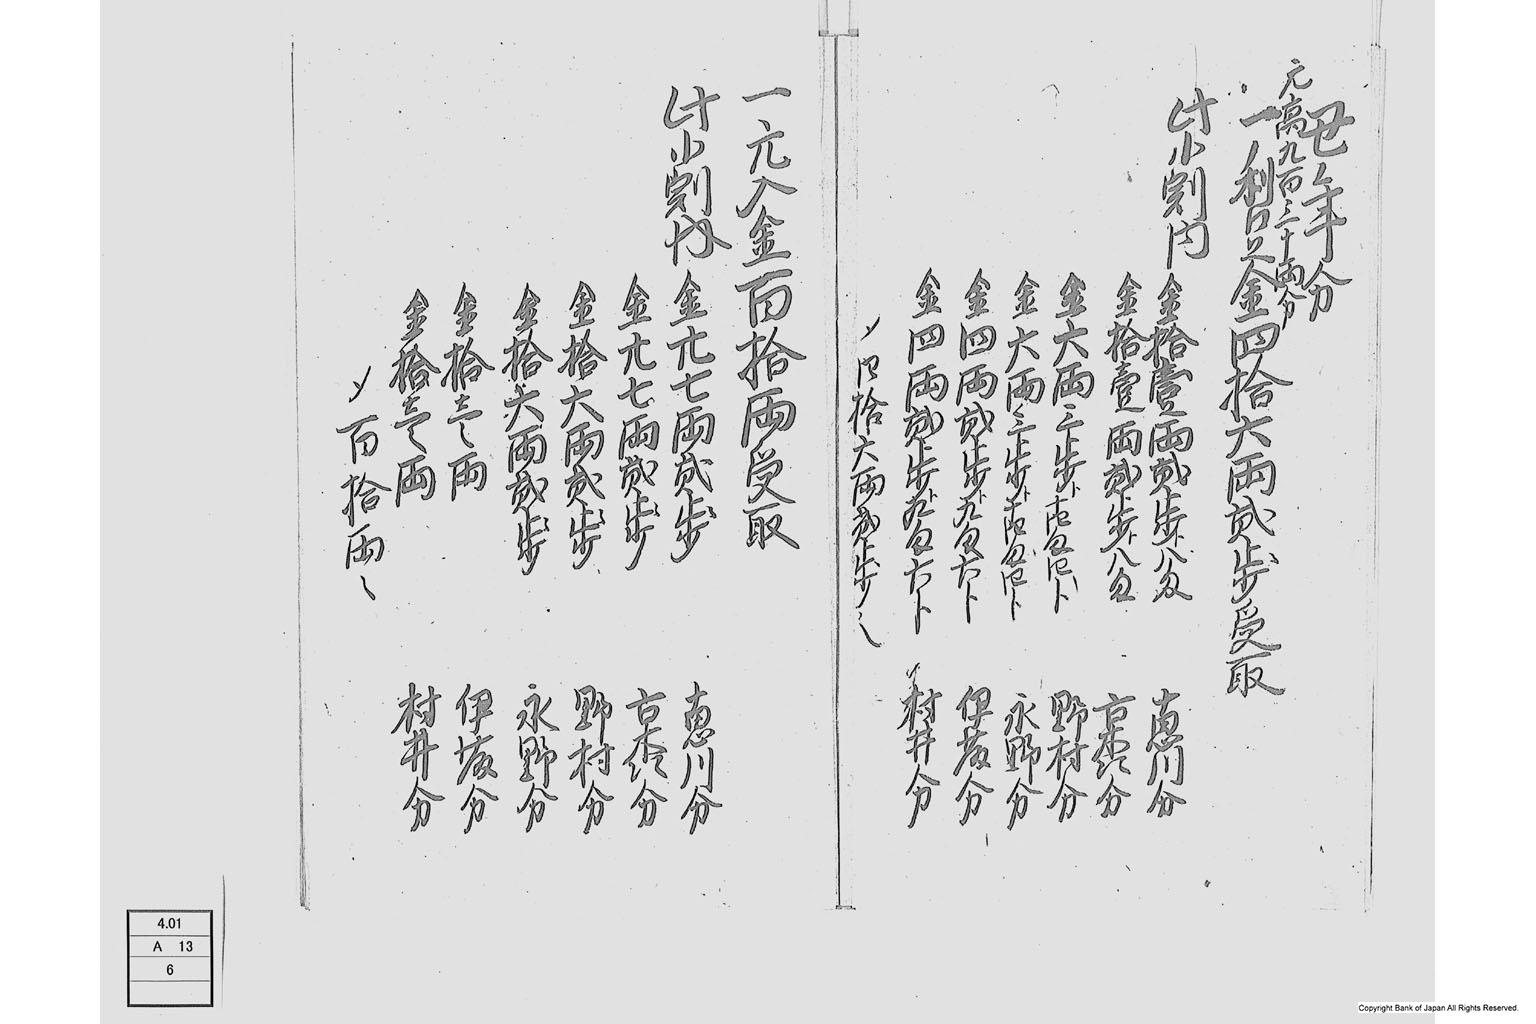 丑年分
元高九百三十両分
一利口〆金四拾六両弐歩受取
此小割内
金拾壹両弐歩ト八匁 恵川分
金拾壹両弐歩ト八匁
金六両三歩ト 野村分
金六両三歩ト 永野分
金四両弐歩ト九匁六卜 伊藤分
金四両弐歩ト九匁六卜 村井分
〆四拾六両弐歩
一元入金百拾両受取
此小割内
金廿七両弐歩 恵川分
金廿七両弐歩
金拾六両弐歩 野村分
金拾六両弐歩 永野分
金拾壱両 伊藤分
金拾壱両 村井分
〆百拾両
4.01
A 13
6
Copyright Bank of Japan All Rights Reserved.